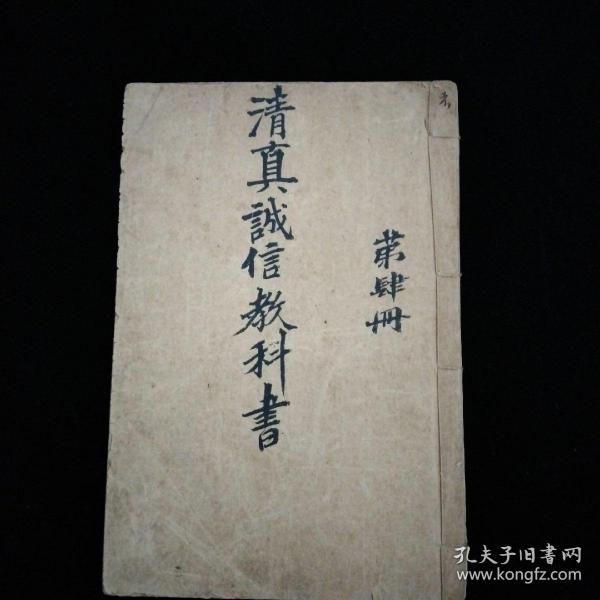 清真誠信教科書
第肆冊
孔夫子旧书网
www.kongfz.com